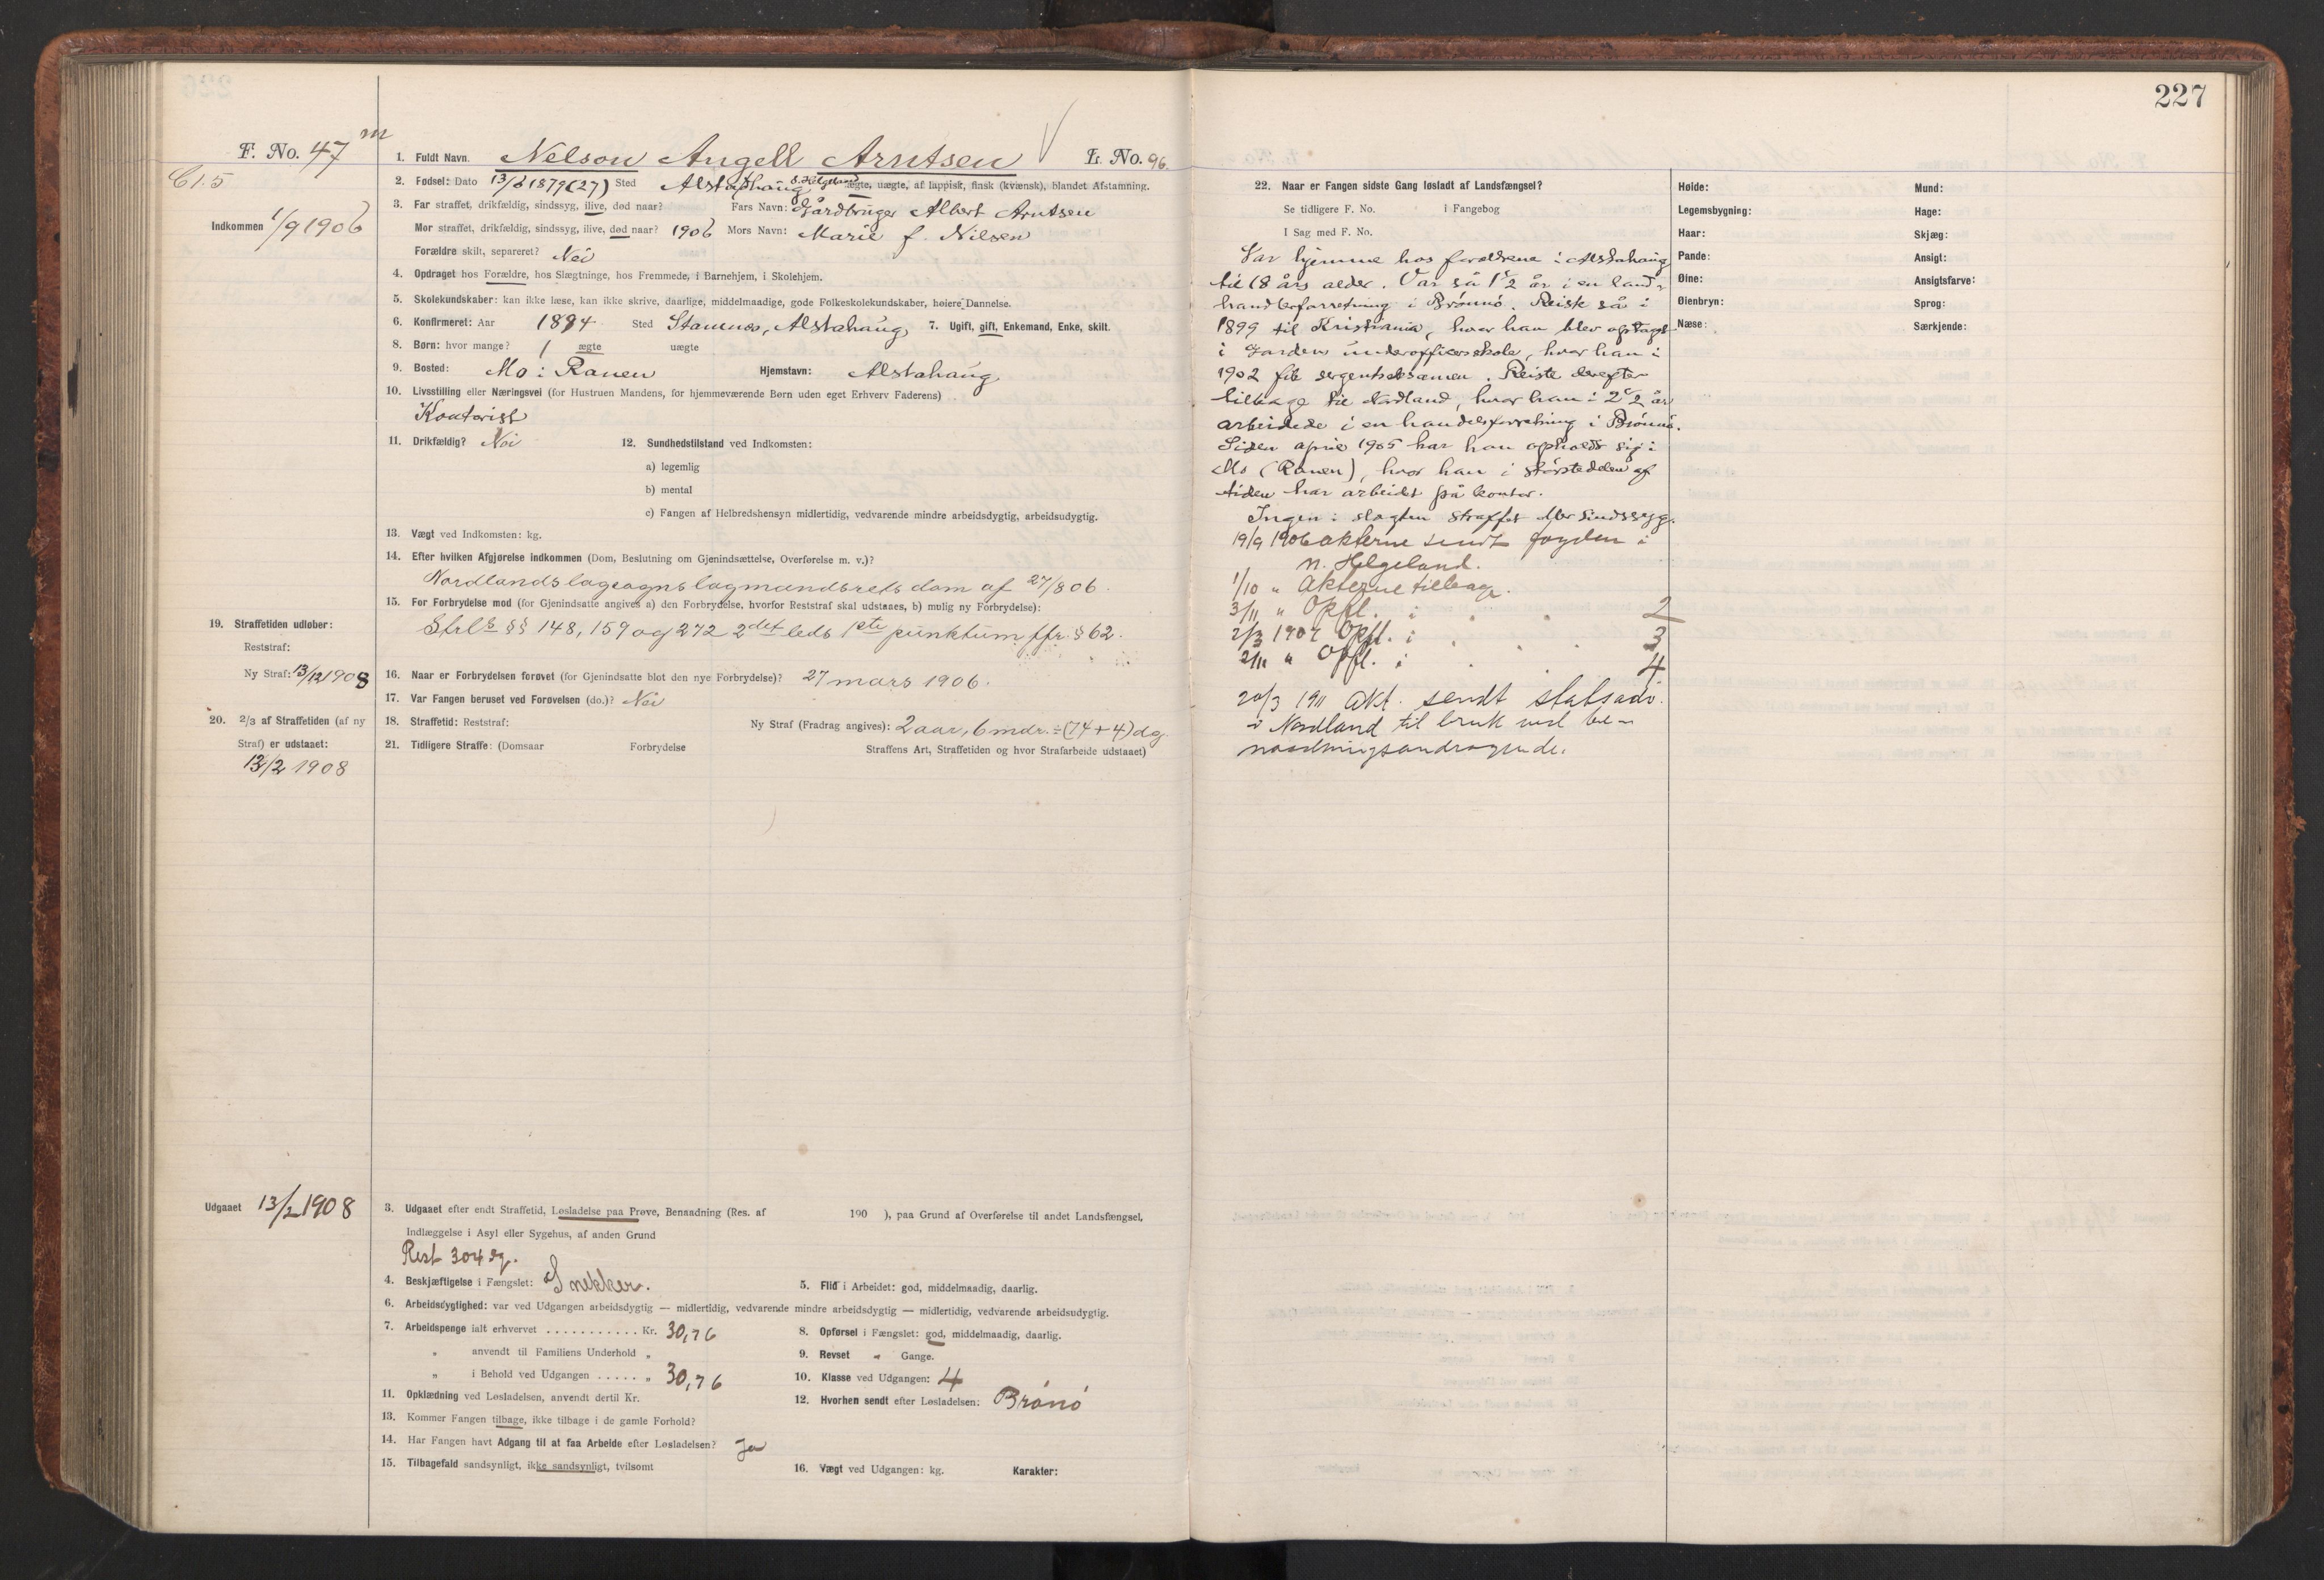 227
F. No. 47 m
Cl. 5
Indkommen 1/9 1906
1. Fuldt Navn. Nelson Angell Arntsen L. No. 96.
2. Fødsel: Dato 13/2 1879 (27) Sted Alstahaug S. Helgeland ægte, uægte, af lappisk, finsk (kvænsk), blandet Afstamning.
3. Far straffet, drikfældig, sindssyg, ilive, død naar? Fars Navn: Gårdbruger Albert Arntsen
Mor straffet, drikfældig, sindssyg, ilive, død naar? 1906 Mors Navn: Marie f. Nilsen
Forældre skilt, separeret? Nei
4. Opdraget hos Forældre, hos Slægtninge, hos Fremmede, i Barnehjem, i Skolehjem.
5. Skolekundskaber: kan ikke læse, kan ikke skrive, daarlige, middelmaadige, gode Folkeskolekundskaber, høiere Dannelse.
6. Konfirmeret: Aar 1894 Sted Stamnes, Alstahaug, 7. Ugift, gift, Enkemand, Enke, skilt.
8. Børn: hvor mange? 1 ægte uægte
9. Bosted: Mo i Ranen Hjemstavn: Alstahaug
10. Livsstilling eller Næringsvei (for Hustruen Mandens, for hjemmeværende Børn uden eget Erhverv Faderens)
Kontorist
11. Drikfældig? Nei 12. Sundhedstilstand ved Indkomsten:
a) legemlig
b) mental
c) Fangen af Helbredshensyn midlertidig, vedvarende mindre arbeidsdygtig, arbeidsudygtig.
13. Vægt ved Indkomsten: kg.
14. Efter hvilken Afgjørelse indkommen (Dom, Beslutning om Gjenindsættelse, Overførelse m. v.)?
Nordlands lagsogns lagmandsrets dom af 27/8 06.
15. For Forbrydelse mod (for Gjenindsatte angives a) den Forbrydelse, hvorfor Reststraf skal udstaaes, b) mulig ny Forbrydelse):
Strl's §§ 148, 159 og 272 2det leds 1ste punktum jfr. § 62.
19. Straffetiden udløber:
Reststraf:
Ny Straf: 13/12 1908
16. Naar er Forbrydelsen forøvet (for Gjenindsatte blot den nye Forbrydelse)? 27 mars 1906.
17. Var Fangen beruset ved Forøvelsen (do.)? Nei
20. 2/3 af Straffetiden (af ny
Straf) er udstaaet:
13/2 1908
18. Straffetid: Reststraf: Ny Straf (Fradrag angives): 2 aar, 6 mdr. ÷ (74 + 4) dg.
21. Tidligere Straffe: (Domsaar Forbrydelse Straffens Art, Straffetiden og hvor Strafarbeide udstaaet)
Udgaaet 13/2 1908
3. Udgaaet efter endt Straffetid, Løsladelse paa Prøve, Benaadning (Res. af 190 ), paa Grund af Overførelse til andet Landsfængsel,
Indlæggelse i Asyl eller Sygehus, af anden Grund
Rest 304 dg.
4. Beskjæftigelse i Fængslet: Snekker. 5. Flid i Arbeidet: god, middelmaadig, daarlig.
6. Arbeidsdygtighed: var ved Udgangen arbeidsdygtig — midlertidig, vedvarende mindre arbeidsdygtig — midlertidig, vedvarende arbeidsudygtig.
7. Arbeidspenge ialt erhvervet ........... Kr. 30,76 8. Opførsel i Fængslet: god, middelmaadig, daarlig.
„ anvendt til Familiens Underhold „ 9. Revset „ Gange.
„ i Behold ved Udgangen ..... „ 30,76 10. Klasse ved Udgangen: 4
11. Opklædning ved Løsladelsen, anvendt dertil Kr. 12. Hvorhen sendt efter Løsladelsen: Brönö
13. Kommer Fangen tilbage, ikke tilbage i de gamle Forhold?
14. Har Fangen havt Adgang til at faa Arbeide efter Løsladelsen? Ja
15. Tilbagefald sandsynligt, ikke sandsynligt, tvilsomt 16. Vægt ved Udgangen: kg. Karakter:
22. Naar er Fangen sidste Gang løsladt af Landsfængsel?
Se tidligere F. No. i Fangebog
I Sag med F. No.
Var hjemme hos forældrene i Alstahaug
til 18 års alder. Var så 1 1/2 år i en land-
handlerforretning i Brönnö. Reiste så i
1899 til Kristiania, hvor han blev optaget
i Gardens underofficersskole, hvor han i
1902 fik sergentseksamen. Reiste derefter
tilbage til Nordland, hvor han i 2 1/2 år
arbeidede i en handelsforretning i Brönnö.
Siden april 1905 har han opholdt sig i
Mo (Ranen), hvor han i störstedelen af
tiden har arbeidet på kontor.
Ingen i slægten straffet eller sindssyg.
19/9 1906 akterne sendt fogden i
N. Helgeland.
1/10 „ Akterne tilbage.
3/11 „ Opfl. i „ „ 2
2/3 1907 Opfl. i „ „ 3
2/11 „ Opfl. i „ „ 4
20/3 1911 Akt. sendt statsadv.
i Nordland til bruk ved be-
naadningsandragende.
Høide:
Legemsbygning:
Haar:
Pande:
Øine:
Øienbryn:
Næse:
Mund:
Hage:
Skjæg:
Ansigt:
Ansigtsfarve:
Sprog:
Særkjende: